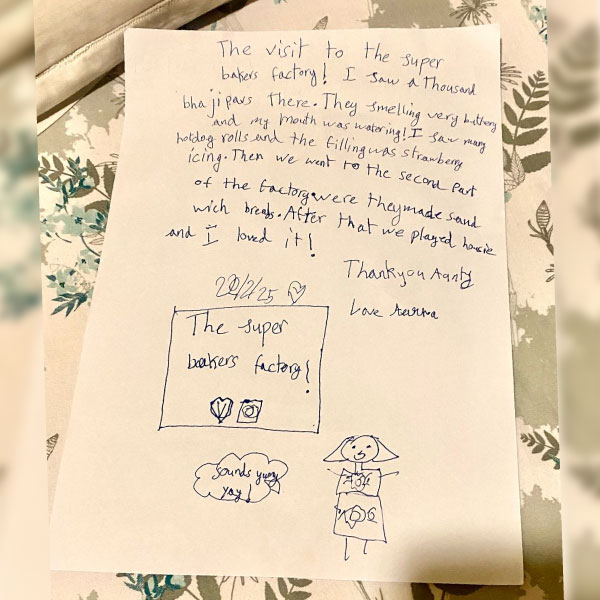 The visit to the super
bakers factory! I saw a Thousand
bhaji pavs There. They smelling very buttery
and my mouth was watering! I saw many
hotdog rolls and the filling was strawberry
icing. Then we went to the second part
of the factory were they made sand
wich breads. After that we played housie
and I loved it!
Thankyou Aanty
Love
20/2/25
The super
bakers factory!
sounds yumy
yay!